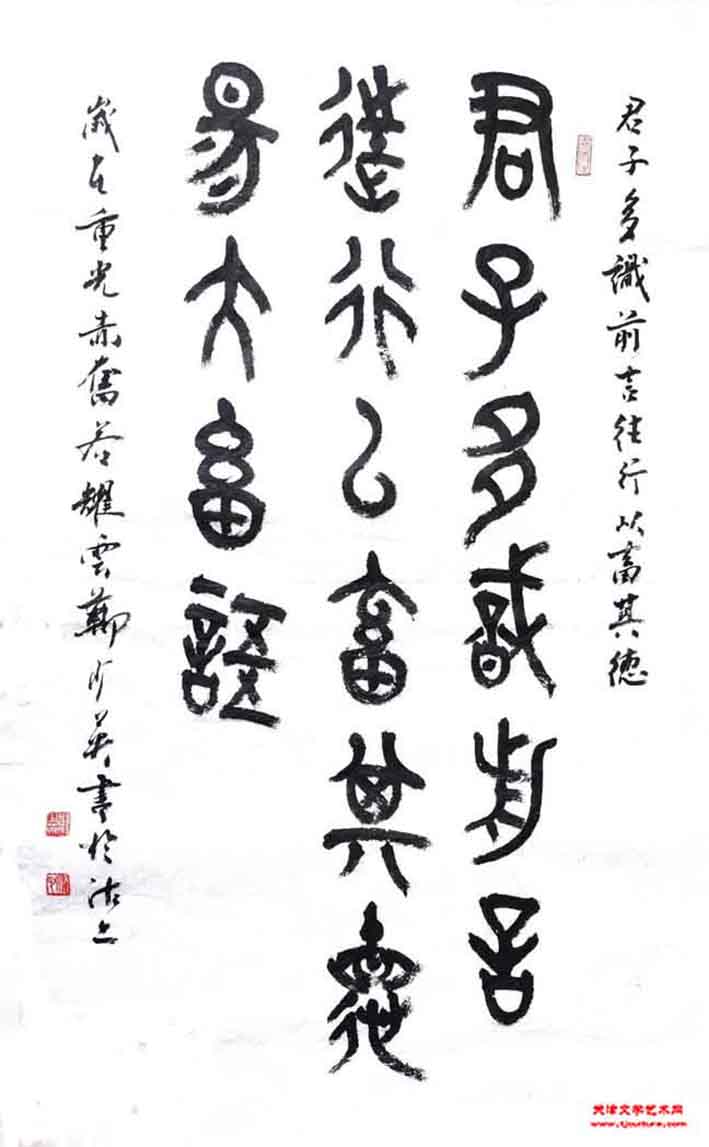 君子多識前言往行以畜其德
君子多識前言
往行以畜其德
易大畜語
歲在重光赤奮若耀雲鄭少英書於沽上
天津文学艺术网
www.tjculture.com